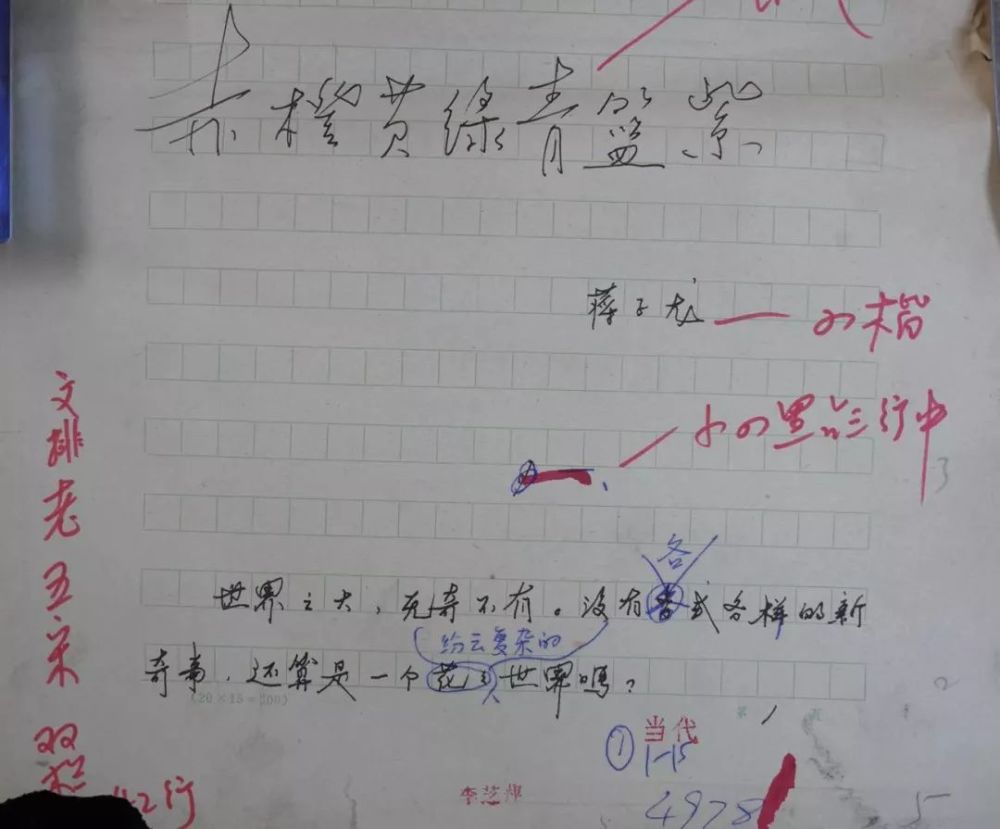 赤橙黄绿青蓝紫
蒋子龙
小楷
小四黑占三行中
一、
文排老五宋
双栏
42行
各
世界之大，无奇不有。没有各式各样的新
纷云复杂的
奇事，还算是一个花世界吗？
(20×15=300)
第 1 页
当代
① 1-15
李芝邦
4978
3
2
5